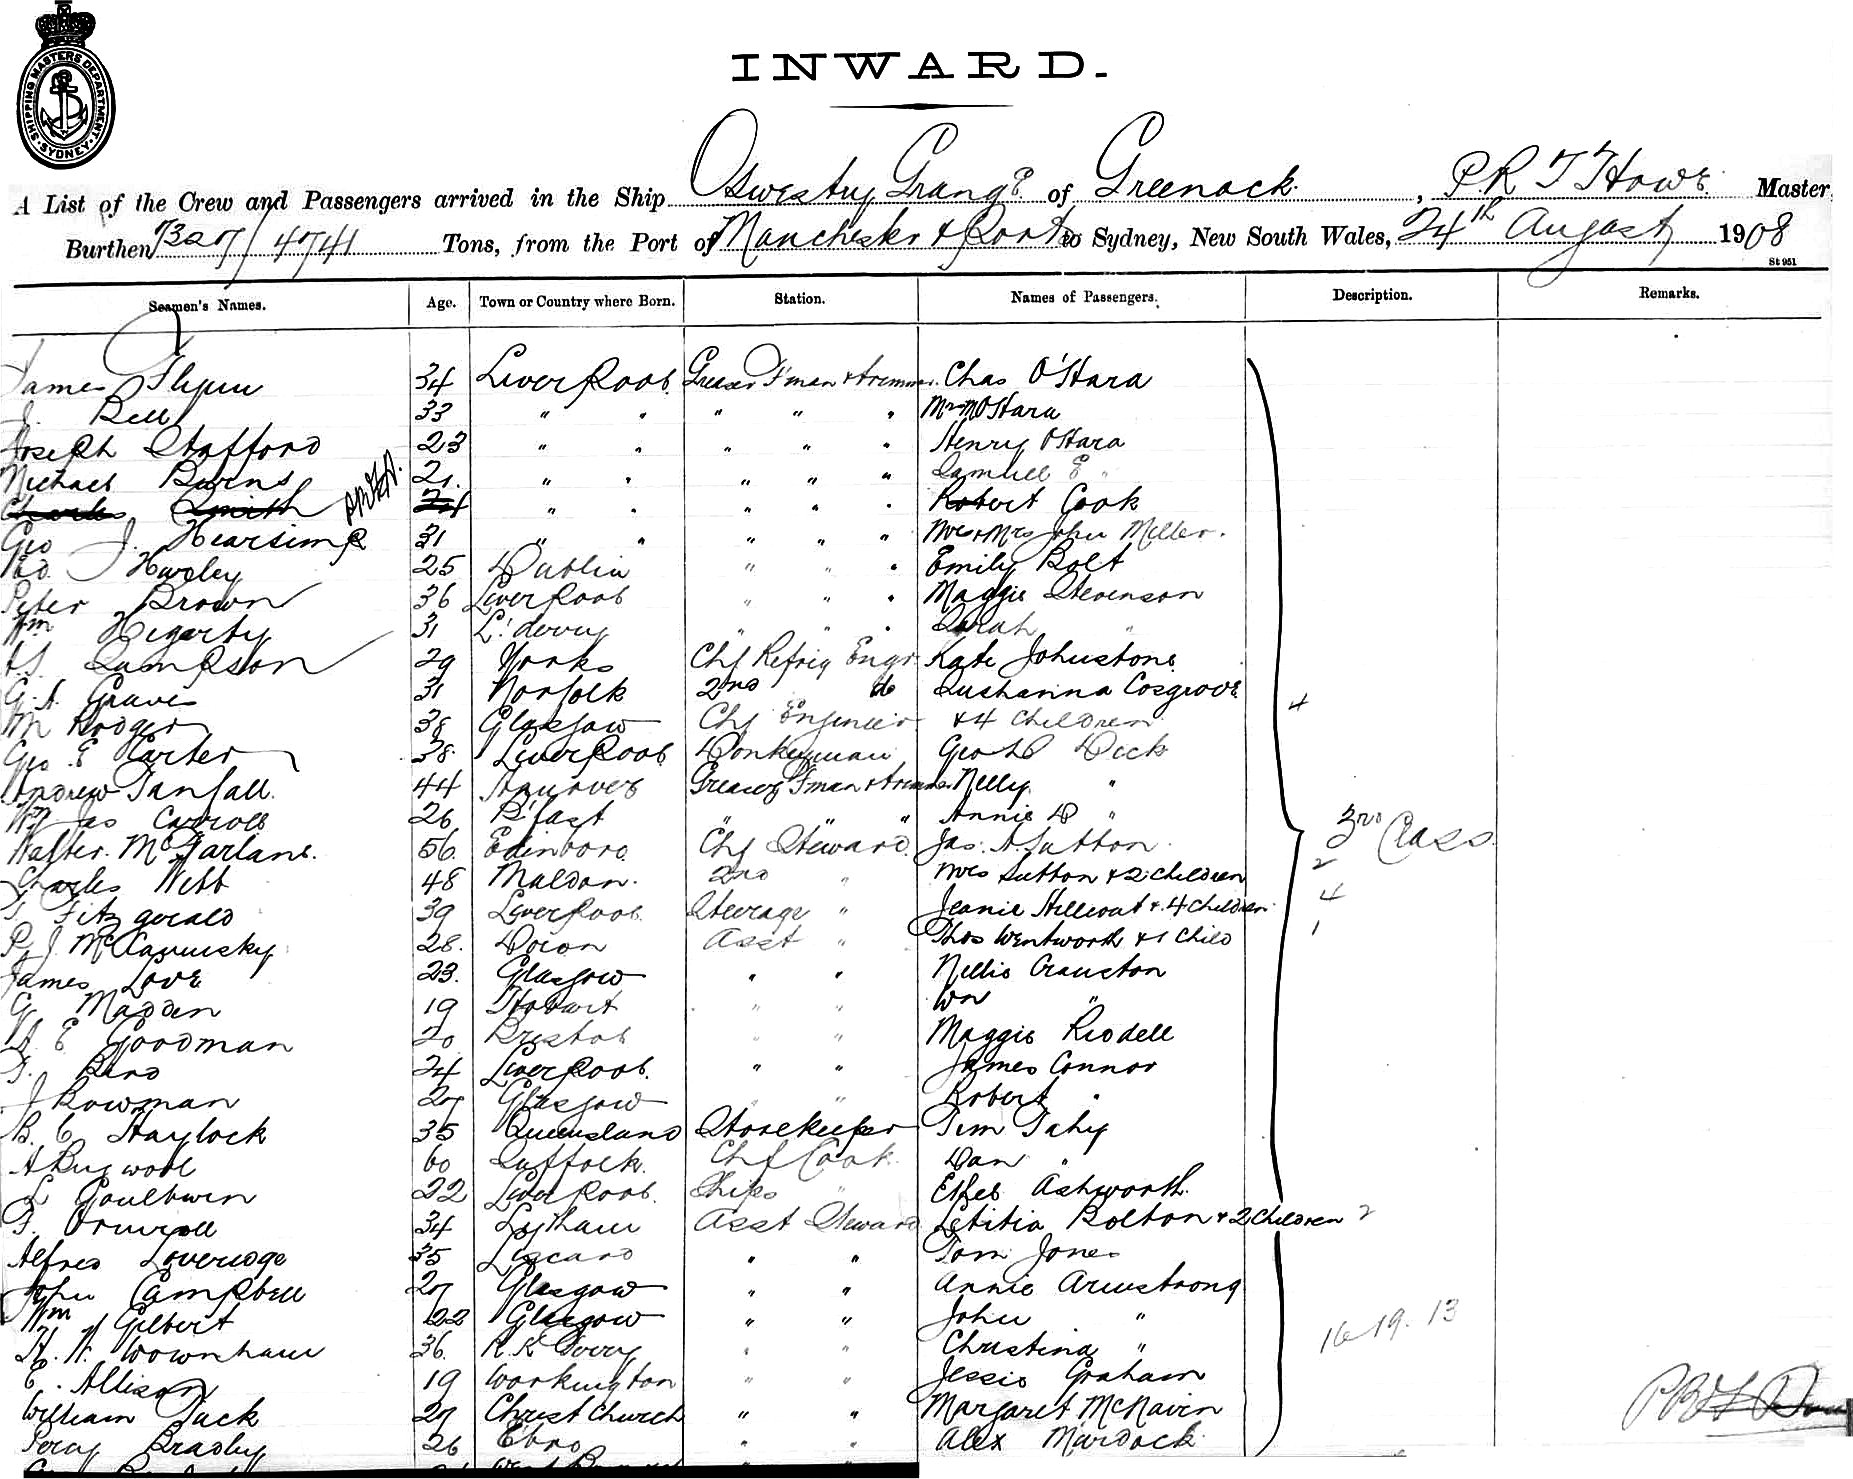 SHIPPING MASTERS DEPARTMENT. SYDNEY
INWARD.
A List of the Crew and Passengers arrived in the Ship Oswestry Grange of Greenock, P.R T Howe Master
Burthen 7327/4741 Tons, from the Port of Manchester & Ports to Sydney, New South Wales, 24th August 1908
St 951
Seamen's Names. Age. Town or Country where Born. Station. Names of Passengers. Description. Remarks.
James Flynn 34 Liverpool Greaser F'man & Trimmer. Chas O'Hara
J. Bell 33 " " " " " Mrs M O'Hara
Joseph Stafford 23 " " " " " Henry O'Hara
Michael Burns 21. " " " " " Samuel E "
Charles Smith 24 " " " " " Robert Cook
Geo J. Hearsimp 31 " " " " " Mr & Mrs John Miller.
Hurley 25 Dublin " " " Emily Bolt
Peter Brown 36 Liverpool " " " Maggie Stevenson
Wm Hegarty 31 L'derry " " " Sarah "
Sampson 29 Yorks Chf Refrig Engr Kate Johnstone
G. A. Graves 31 Norfolk 2nd do Sushanna Cosgrove
M Rodger 38 Glasgow Chf Engineer & 4 children 4
Geo E Carter 38. Liverpool Donkeyman Geo Dick
Andrew Tanfall. 44 Hanover Greaser F'man & Trimmer Nelly "
Wm Jas Carroll 26 B'fast " " " Annie D "
Walter McFarlane. 56. Edinboro Chf Steward. Jas. A. Sutton 3rd Class
Charles Webb 48 Maldon. 2nd " Mrs Sutton & 2 children 2
T. Fitzgerald 39 Liverpool Steerage " Jeanie & 4 children 4
P. J. 28. Asst " Thos Wentworth & 1 child 1
James Love 23. Glasgow " " Nellie Cranston
G. Madden 19 Hobart " " Wm "
A. E Goodman 20 Bristol " " Maggie Riddell
T. Bird 24 Liverpool. " " James Connor
J Bowman 27 Glasgow " " Robert "
B. C Haylock 35 Queensland Storekeeper Tim Tahy
A Bugwool 60 Suffolk. Chf Cook Dan "
L Goulburn 22 Liverpool. Ships " Ethel Ashworth
34 Lytham Asst Steward Letitia Bolton & 2 Children 2
Alfred Loveridge 35 Liscard " " Tom Jones
John Campbell 27 Glasgow " " Annie Armstrong
Wm Gilbert 22 Glasgow " " John "
H. W. Downham 36. " " Christina " 16 19. 13
E. Allison 19 Workington " " Jessie Graham
William Tuck 27 Christ Church " " Margaret McNairn
Percy Bradley 26 " " Alex Murdock